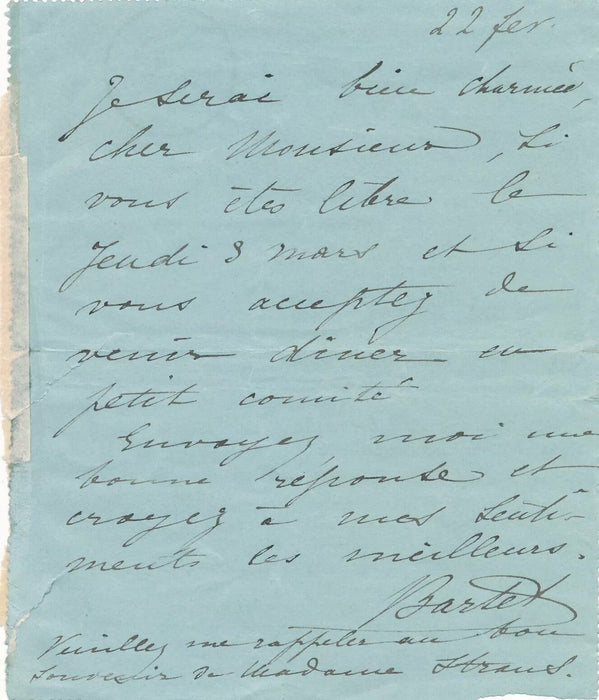 22 fev.
Je serai bien charmée,
cher Monsieur, si
vous êtes libre le
Jeudi 3 mars et si
vous acceptez de
venir dîner en
petit comité
Envoyez moi une
bonne réponse et
croyez à mes senti-
ments les meilleurs.
Bartet
Veuillez me rappeler au bon
souvenir de Madame Straus.